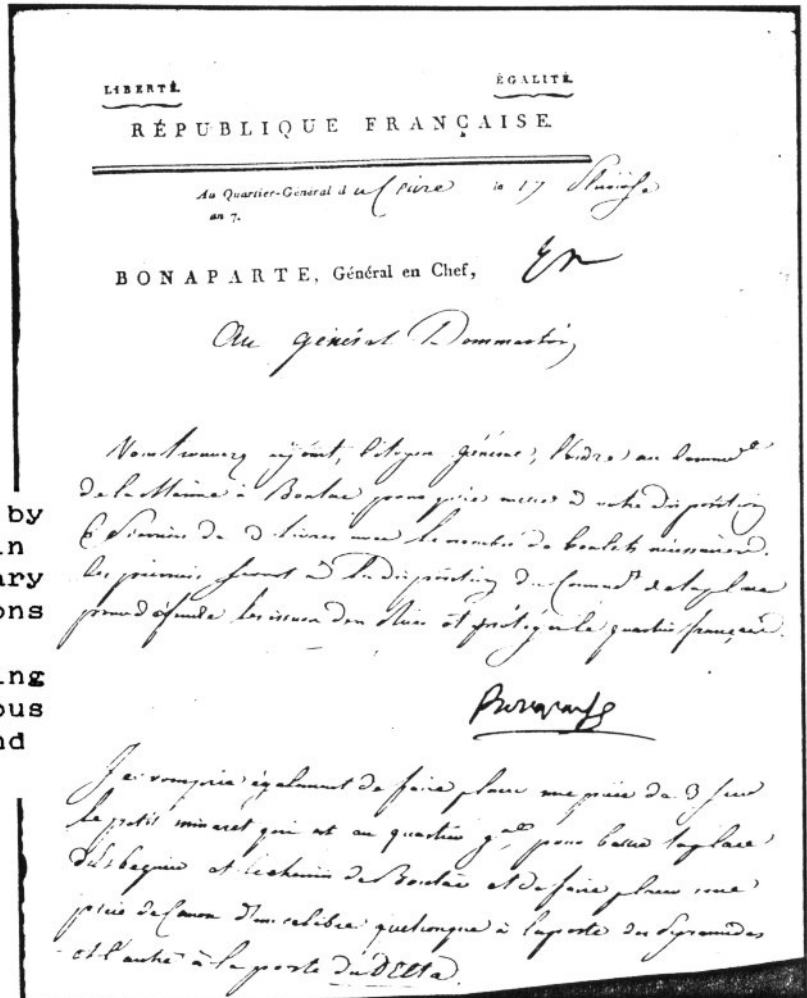 LIBERTÉ. ÉGALITÉ.
RÉPUBLIQUE FRANÇAISE.
Au Quartier-Général d u Caire le 17 Pluviôse
an 7.
BONAPARTE, Général en Chef,
Au général Dommartin
Vous trouverez ci joint, Citoyen général, l'ordre au Command.t
de la Marine à Boulac pour mettre à votre disposition
6 de 3 livres avec le nombre de boulets nécessaires.
Ces seront à la disposition du Command.t de la place
pour défendre les issues des Rues et protéger le quartier français.
Bonaparte
Je vous prie également de faire placer une pièce de 3 sur
le petit minaret qui est au quartier g.al pour battre la place
et le chemin de Boulac et de faire placer une
pièce de Canon d'un calibre quelconque à la porte des Pyramides
et l'autre à la porte du DElta.
by
in
ary
ons
ing
ous
nd